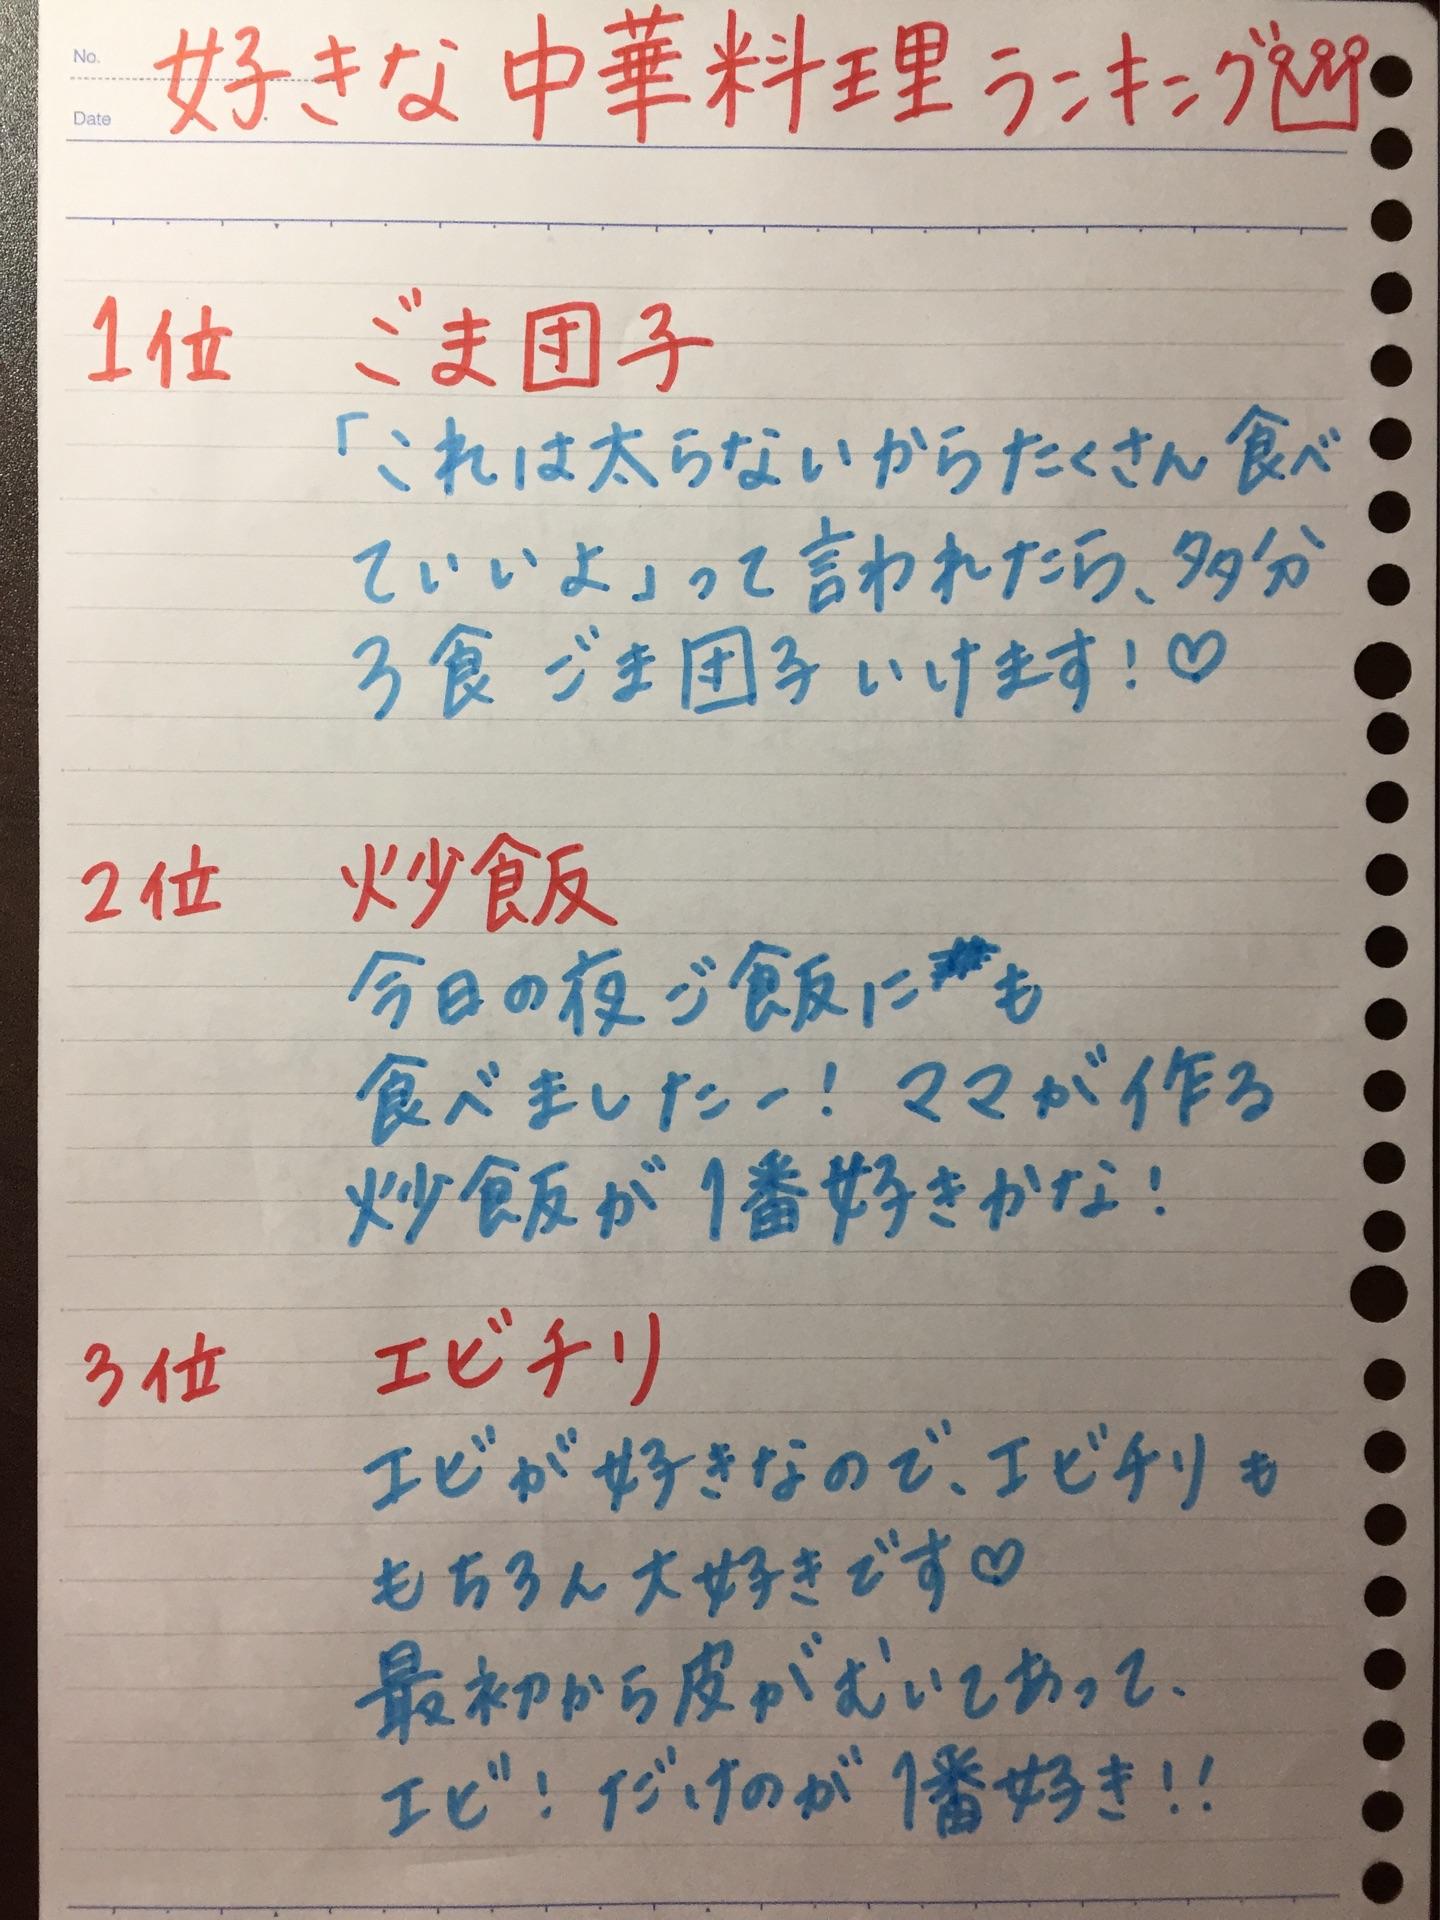 No.
Date
好きな中華料理ランキング
1位 ごま団子
「これは太らないからたくさん食べ
ていいよ」って言われたら、多分
3食 ごま団子いけます！♡
2位 炒飯
今日の夜ご飯にも
食べましたー！ ママが作る
炒飯が1番好きかな！
3位 エビチリ
エビが好きなので、エビチリも
もちろん大好きです♡
最初から皮がむいてあって、
エビ！だけのが1番好き！！